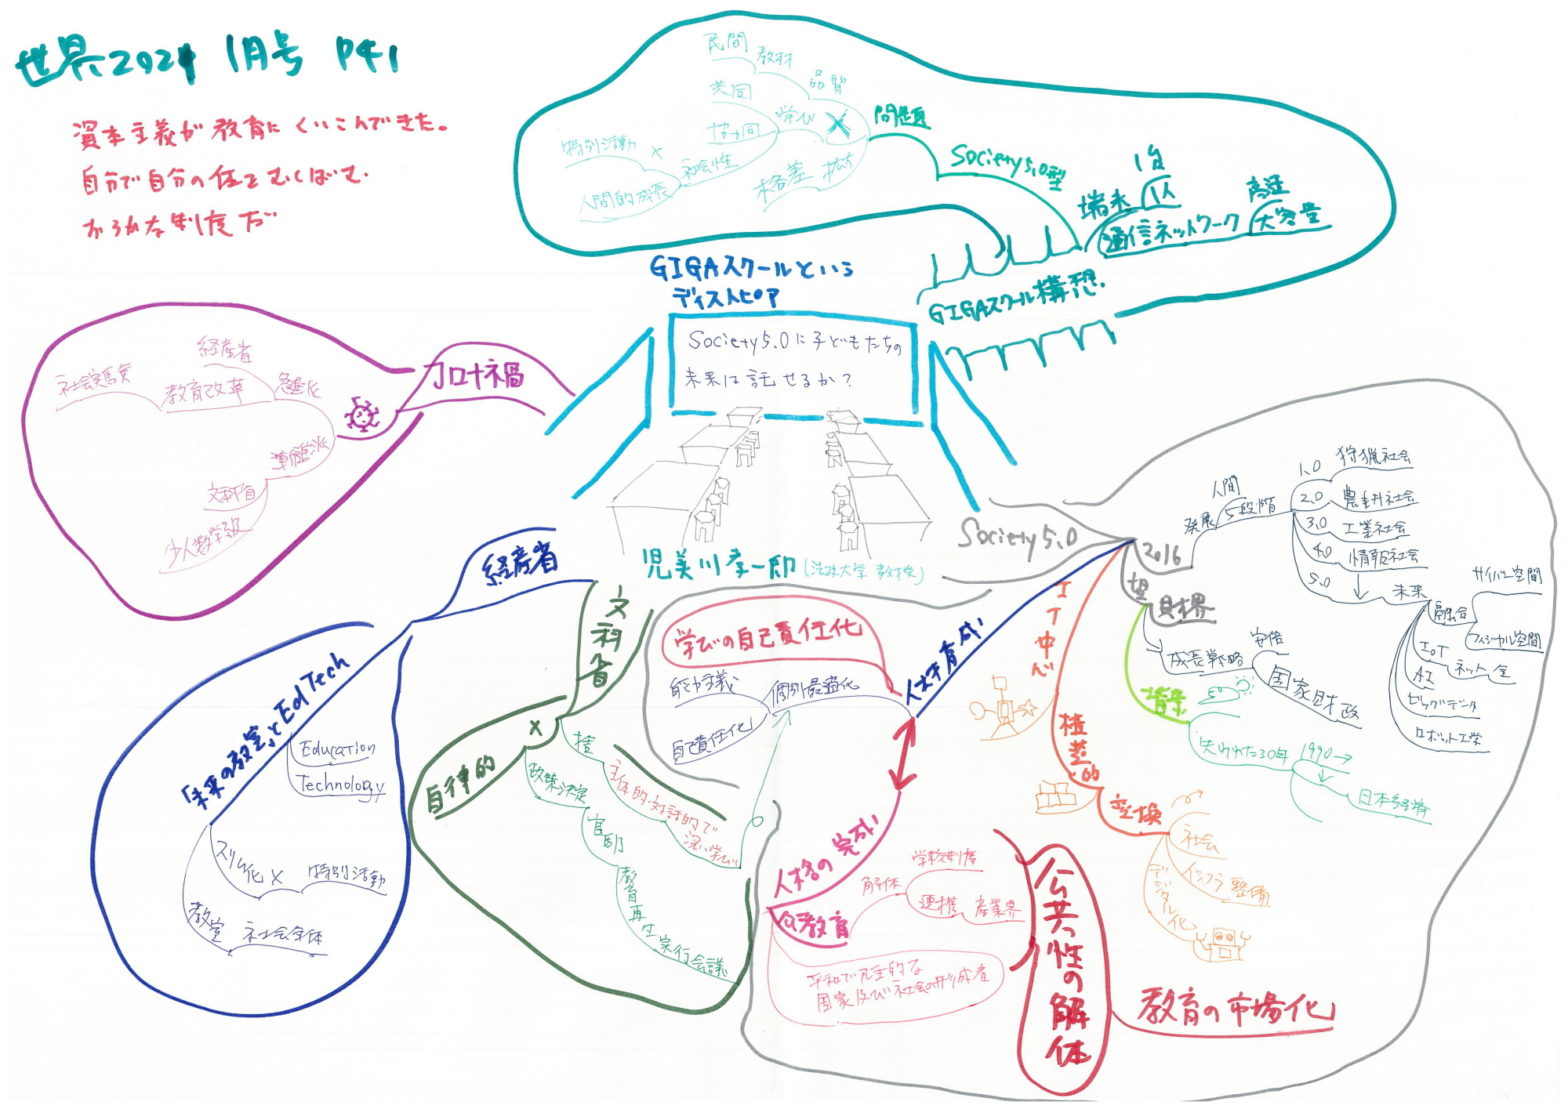 世界2021 1月号 P41
資本主義が教育にくいこんできた。
自分で自分の体をむしばむ.
おろかな制度だ
GIGAスクールという
ディストピア
Society5.0に子どもたちの
未来は託せるか?
児美川孝一郎(法政大学 教授)
GIGAスクール構想.
端末
1台
1人
通信ネットワーク
高速
大容量
Society5.0型
問題
品質
教材
民間
学び
×
協同
共同
社会性
特別活動 ×
人間的成長
格差 拡大
コロナ禍
急進派
経産省
教育改革
社会実験
準備派
文科省
少人数学級
経産省
「未来の教室」とEdTech
Education
Technology
スリム化 × 特別活動
教室 社会全体
文科省
×
自律的
捨
主体的・対話的で
深い学び
政策決定
官邸
教育再生実行会議
Society5.0
2016
発展
人間
5段階
1.0 狩猟社会
2.0 農耕社会
3.0 工業社会
4.0 情報社会
5.0 未来
融合
サイバー空間
フィジカル空間
IoT ネット 全
AI
ビッグデータ
ロボット工学
望
財界
成長戦略
安倍
国家財政
背景
失われた30年
1990→
日本経済
ITせべ
基盤
変換
社会
インフラ 整備
デジタル化
人材育成
学びの自己責任化
個別最適化
能力主義
自己責任化
人格の完成
公教育
解体
学校制度
連携 産業界
平和で民主的な
国家及び社会の形成者
公共っ性の解体
教育の市場化